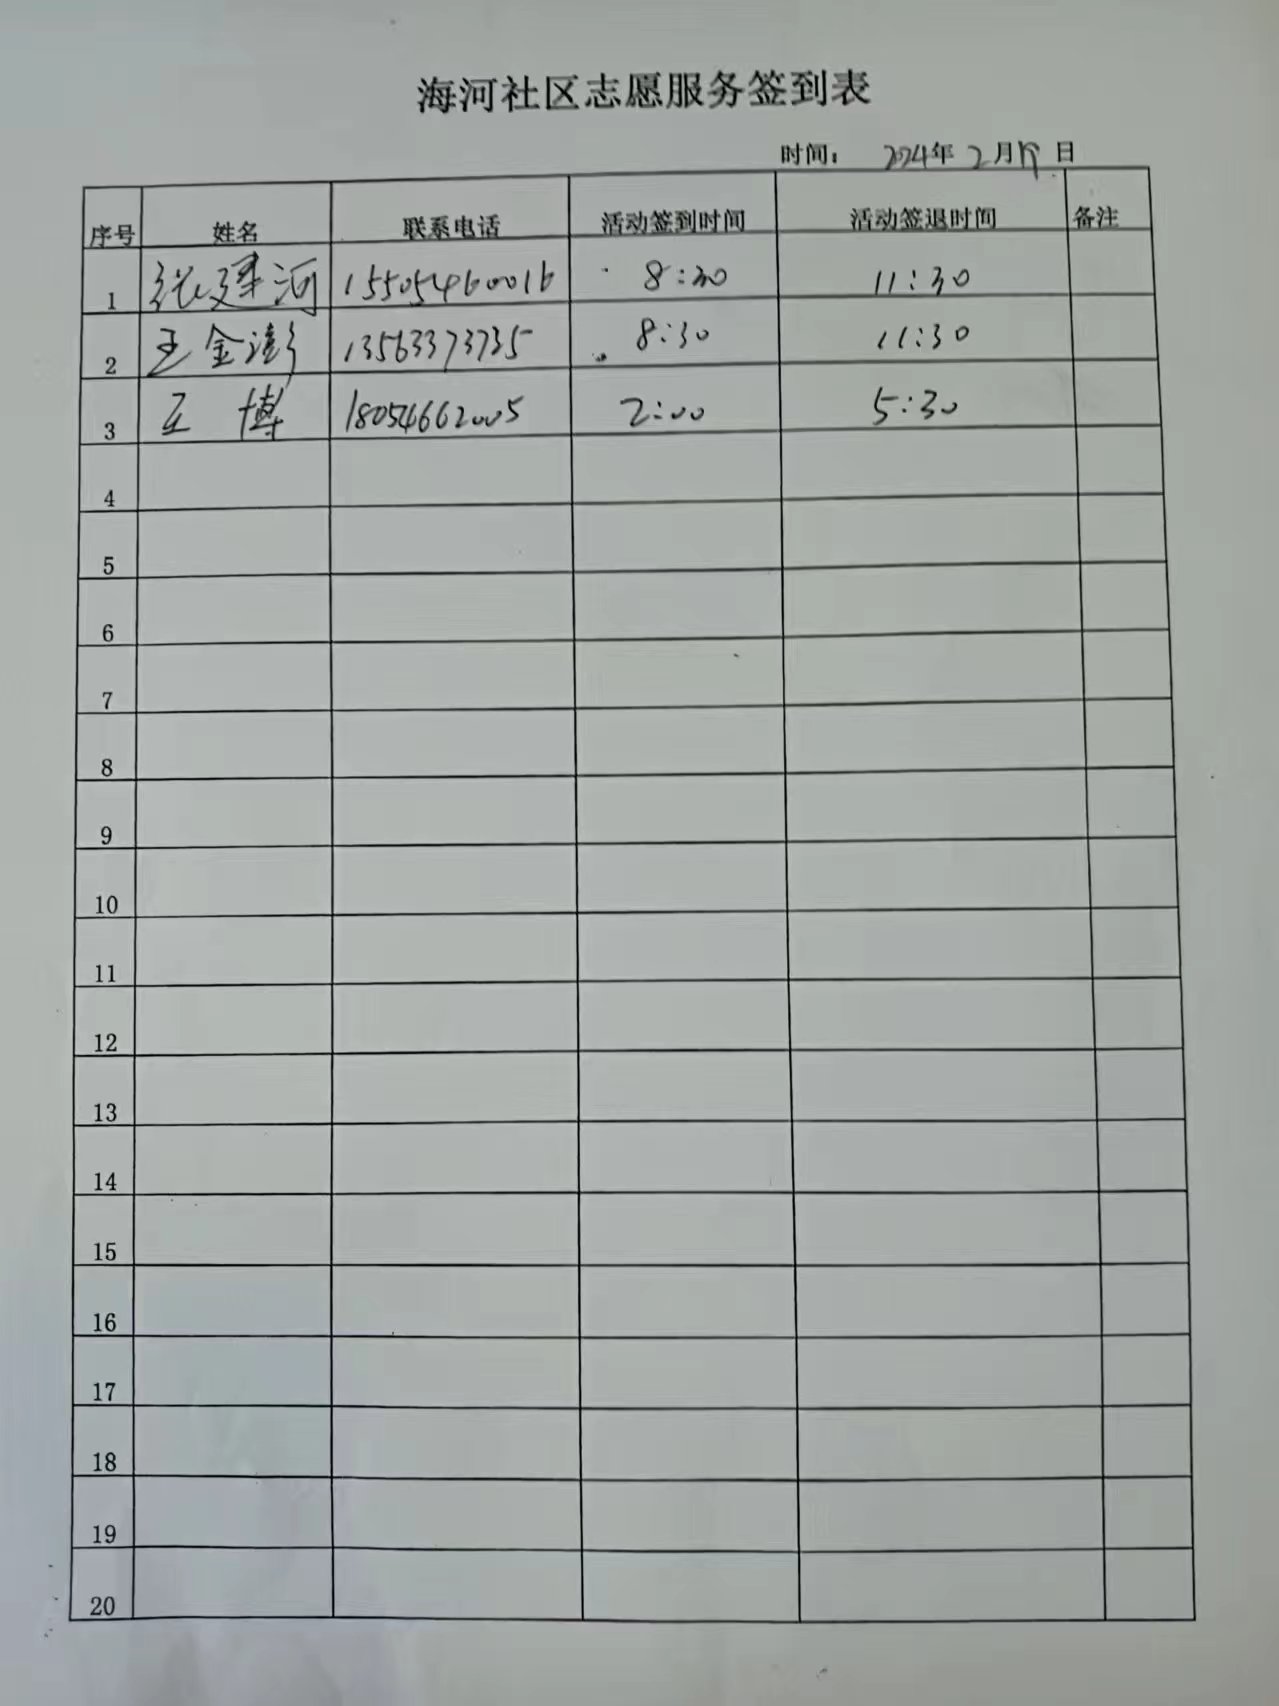 海河社区志愿服务签到表
时间： 2024年 2月19日
序号 姓名 联系电话 活动签到时间 活动签退时间 备注
1 张建河 15505460016 8:30 11:30
2 王金澎 13563373735 8:30 11:30
3 王博 18054662005 2:00 5:30
4
5
6
7
8
9
10
11
12
13
14
15
16
17
18
19
20